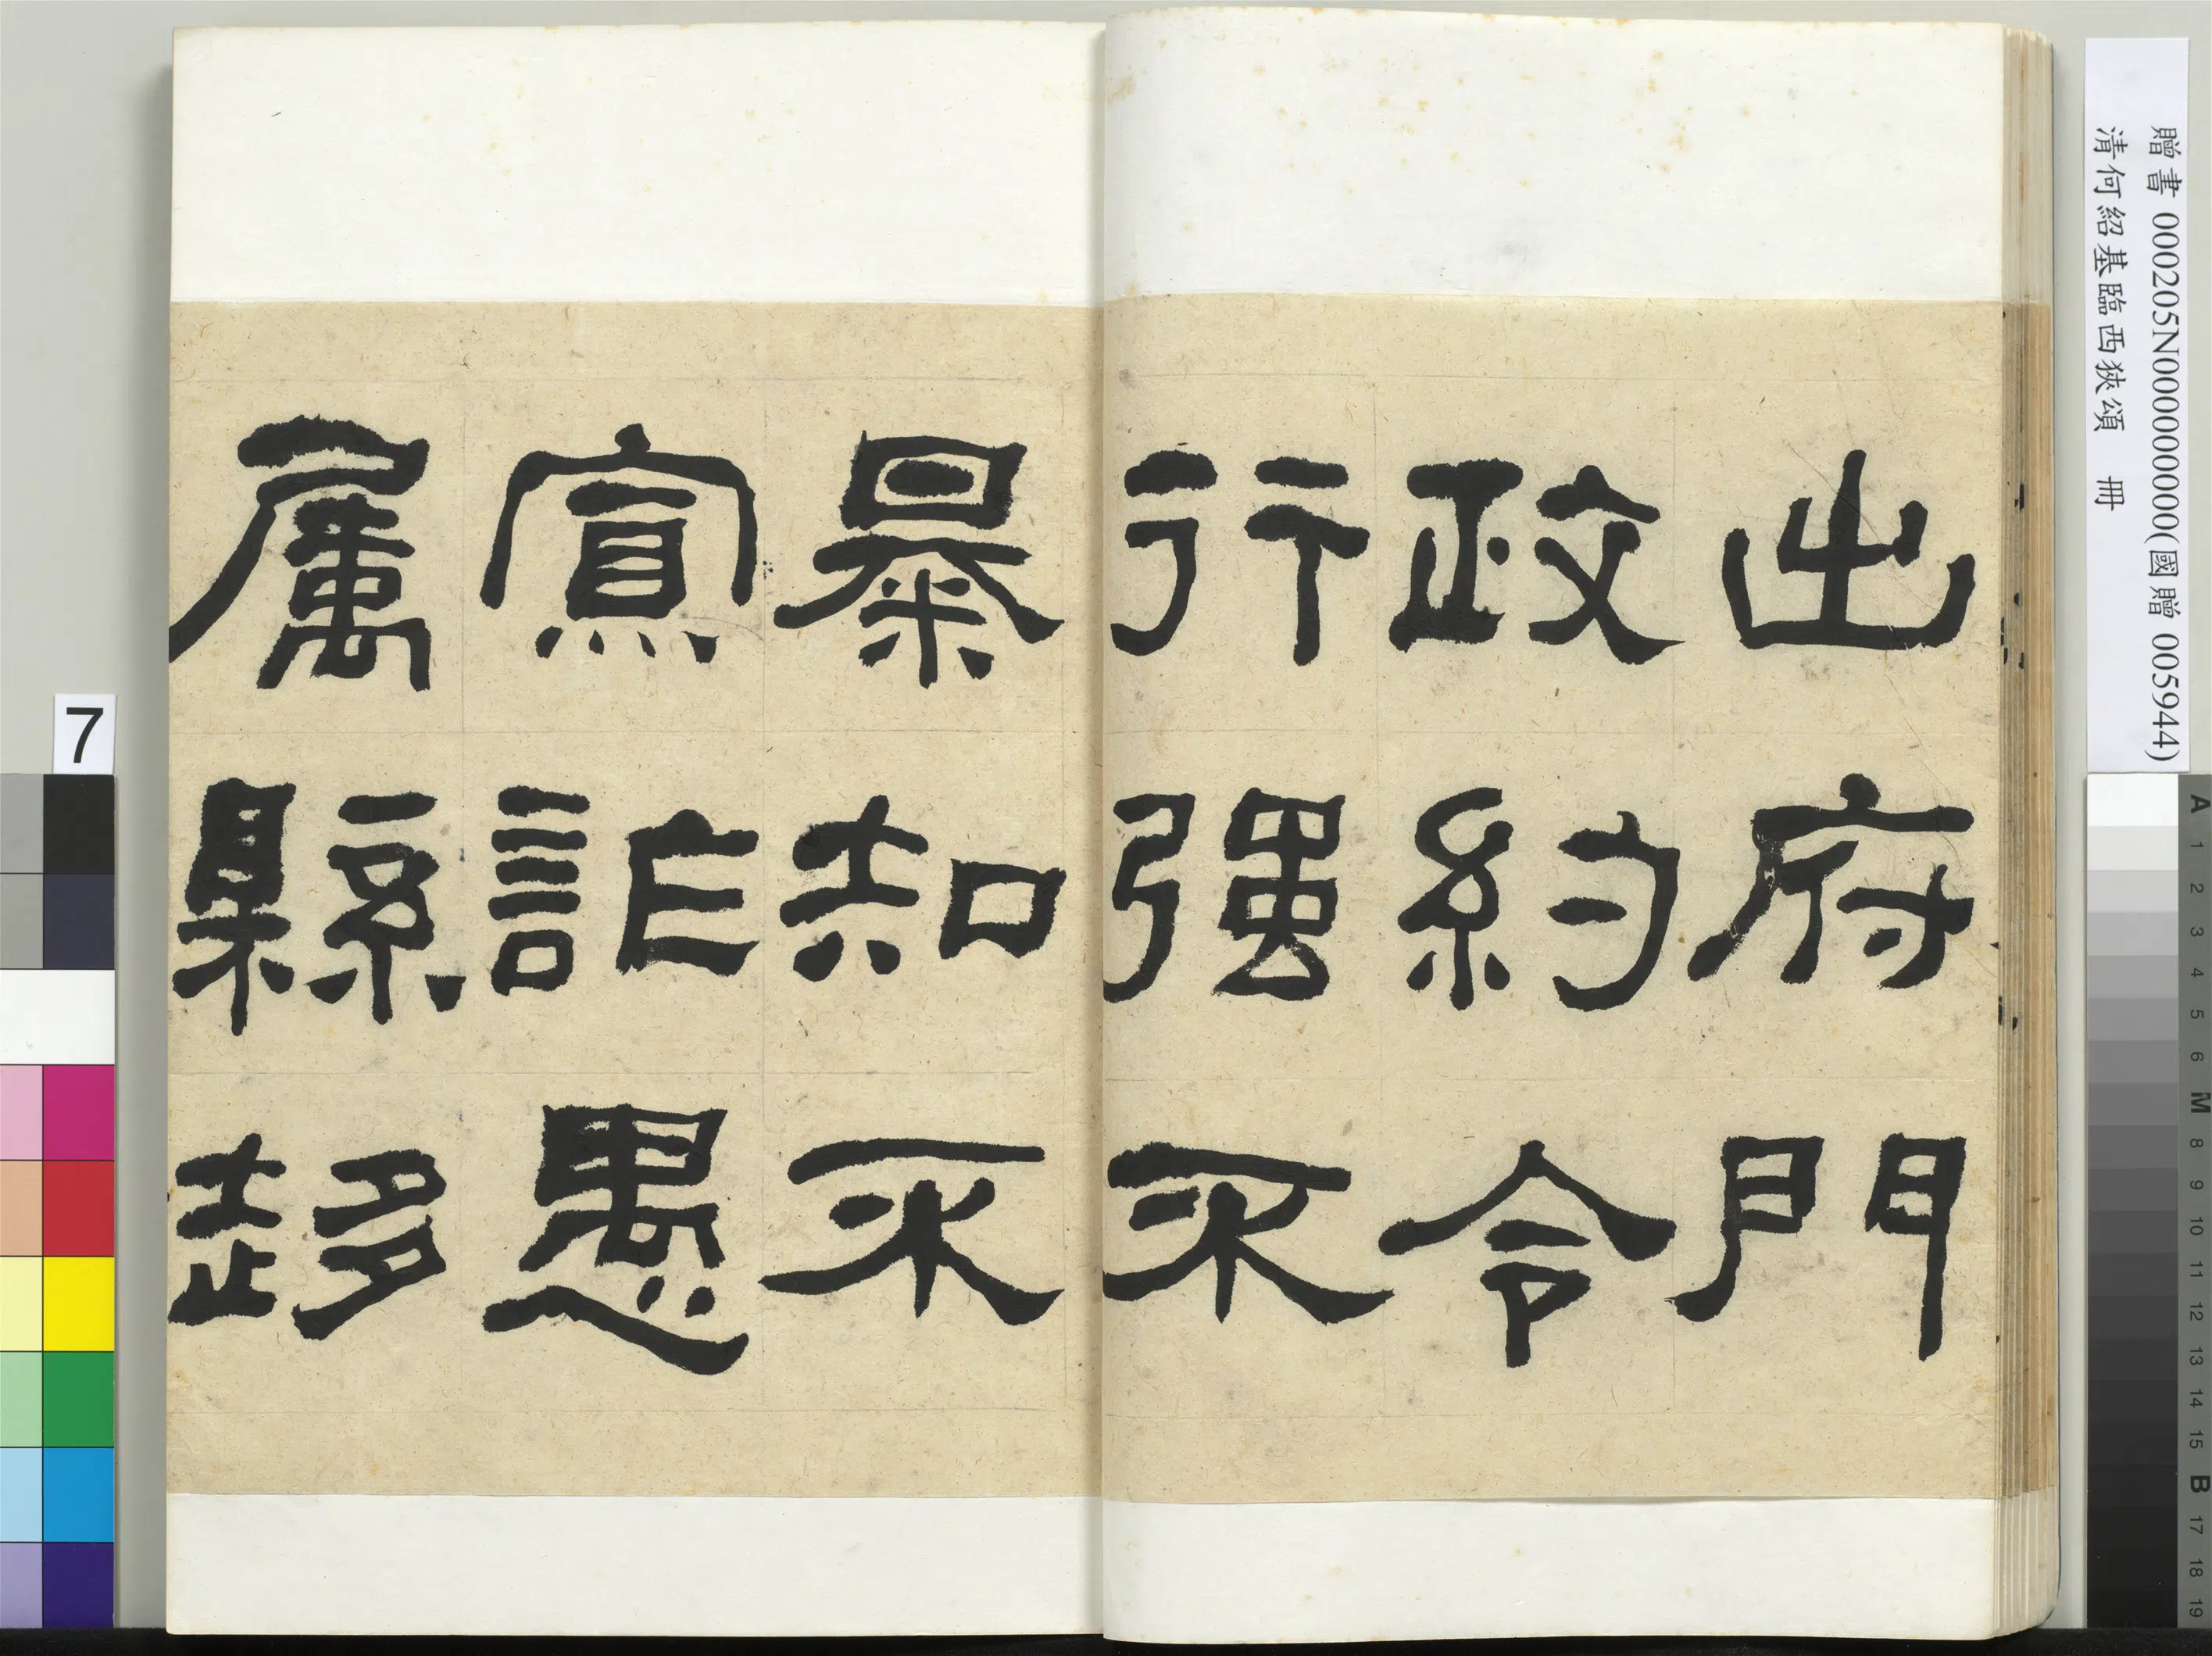 出府門
政約令
行强不
暴知不
寡詐愚
屬縣趍
贈書 000205N000000000(國贈 005944)
清何紹基臨西狹頌 冊
7
A 1 2 3 4 5 6 M 8 9 10 11 12 13 14 15 B 17 18 19